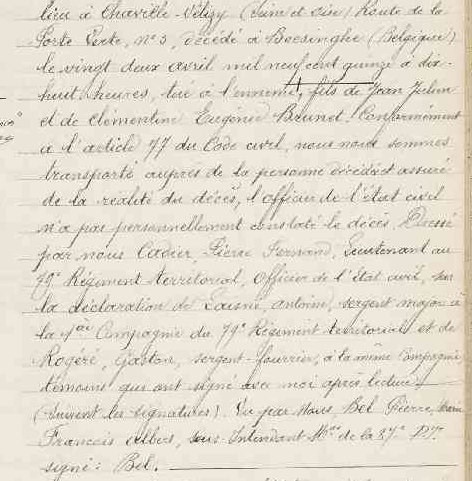 lieu à Chaville-Vélizy (Seine et Oise) Route de la
Porte Verte, n° 3, décédé à Boesinghe (Belgique)
le vingt deux avril mil neuf cent quinze à dix-
huit heures, tué à l'ennemi, fils de Jean Julien
et de Clémentine Eugénie Brunet. Conformément
à l'article 77 du Code civil, nous nous sommes
transporté auprès de la personne décédée et assuré
de la réalité du décès, l'officier de l'état civil
n'a pas personnellement constaté le décès, Dressé
par nous Cadier, Pierre Fernand, Lieutenant au
79e Régiment territorial, officier de l'État civil, sur
la déclaration de Laisné, Antoine, sergent major à
la 4e Compagnie du 79e Régiment territorial et de
Rogéré, Gaston, sergent-fourrier, à la même Compagnie,
témoins qui ont signé avec moi après lecture.
(Suivent les signatures). Vu par Nous, Bel Pierre,
François Albert, sous-Intendant Mre de la 87e Don
signé: Bel.